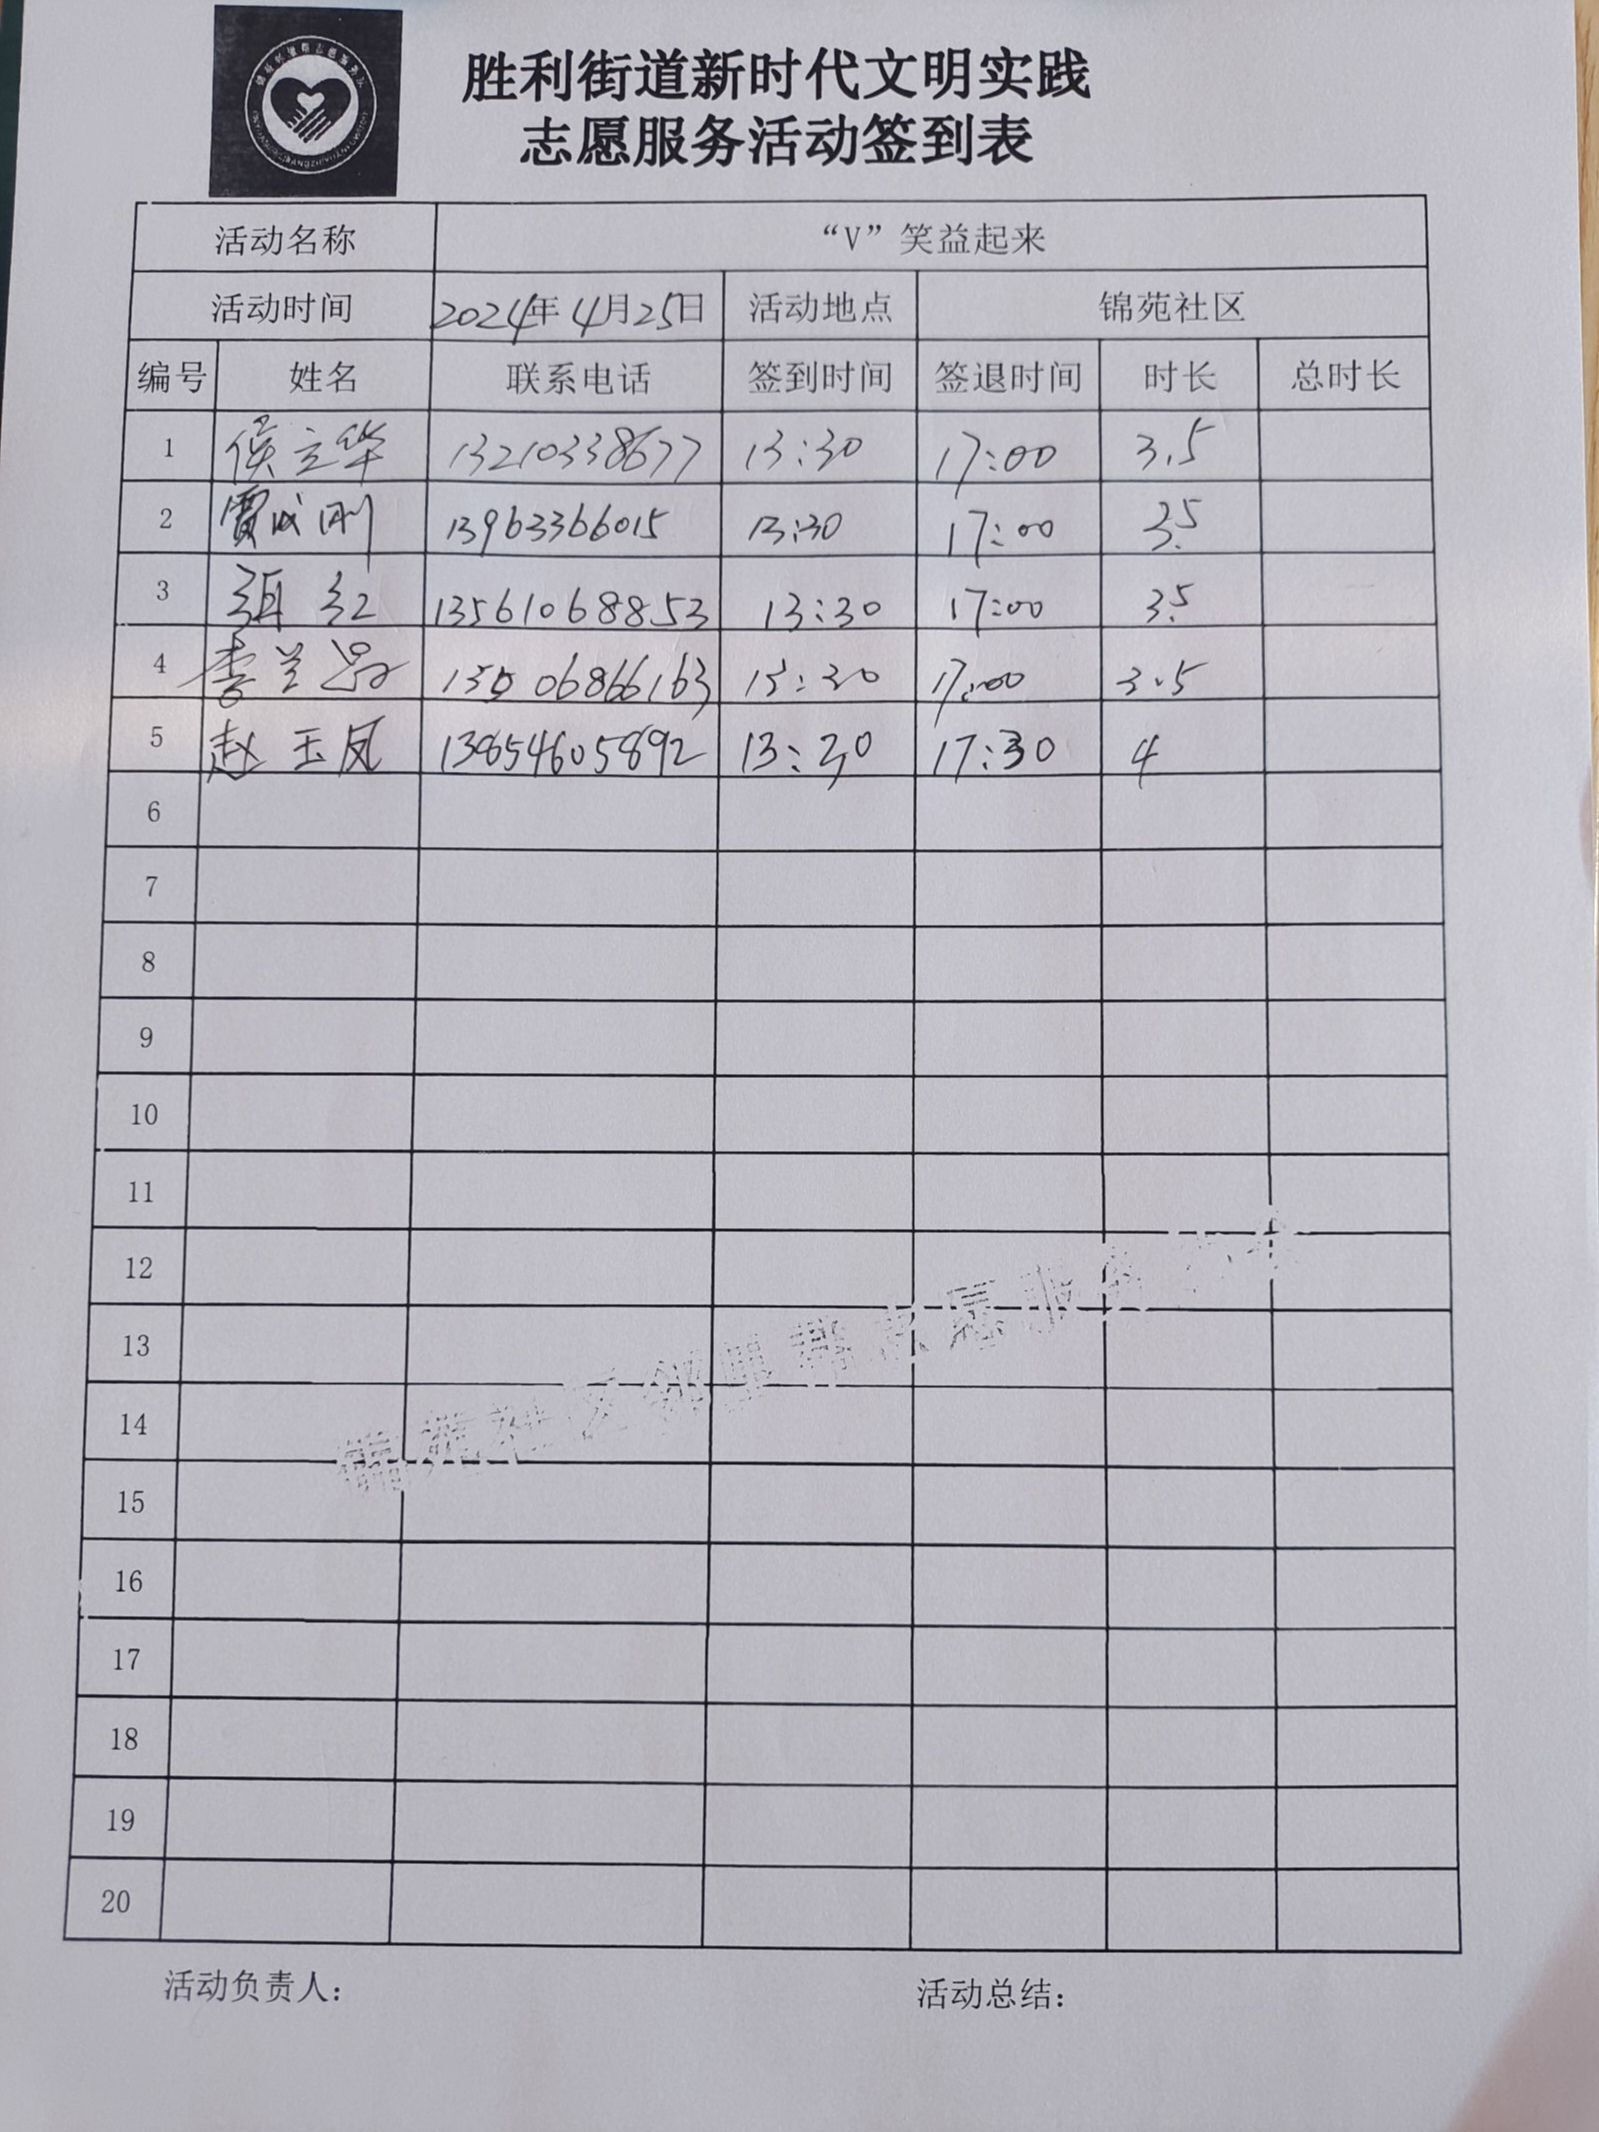 胜利街道新时代文明实践
志愿服务活动签到表
活动名称 “V”笑益起来
活动时间 2024年4月25日 活动地点 锦苑社区
编号 姓名 联系电话 签到时间 签退时间 时长 总时长
1 侯立华 13210338677 13:30 17:00 3.5
2 贾成刚 13963366015 13:30 17:00 3.5
3 红 13561068853 13:30 17:00 3.5
4 李兰 13506866163 13:30 17:00 3.5
5 赵玉凤 13854605892 13:30 17:30 4
6
7
8
9
10
11
12
13
锦苑社区邻里帮志愿服务
14
15
16
17
18
19
20
活动负责人： 活动总结：